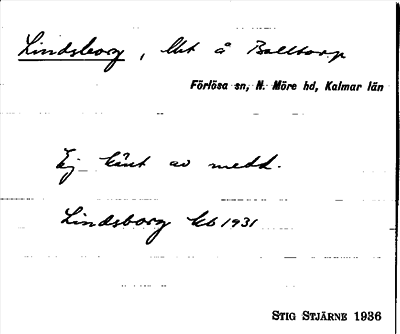 Lindsborg, lht å Balltorp
Förlösa sn, N. Möre hd, Kalmar län
Ej känt av medd.
Lindsborg kb 1931
STIG STJÄRNE 1936